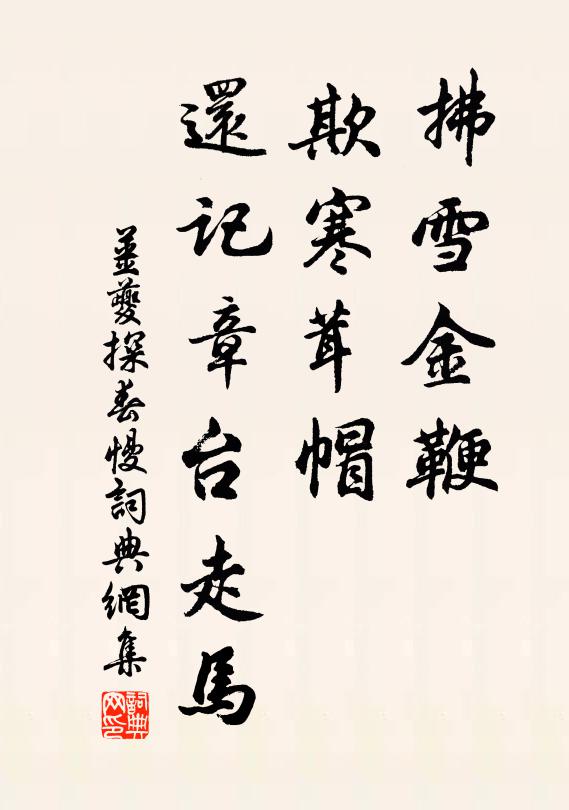 拂雪金鞭
欺寒茸帽
還記章台走馬
姜夔探春慢詞典網集
詞典網印